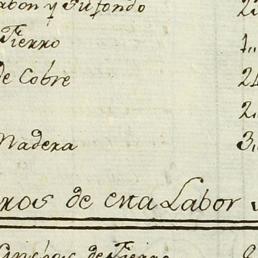 abon y su fondo 23
Fierro 1..
de Cobre 24
2.
Madera 3.
ros de esta Labor
de Fierro